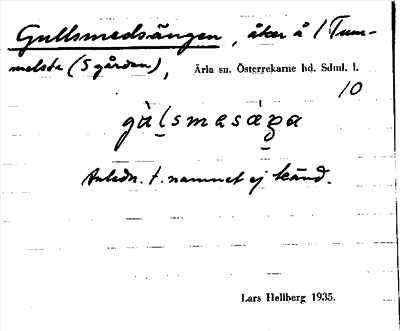 Gullsmedsängen, åker å 1 Tum-
melsta (S gården), Ärla sn. Österrekarne hd. Sdml. l.
10
Anledn. t. namnet ej känd.
Lars Hellberg 1935.